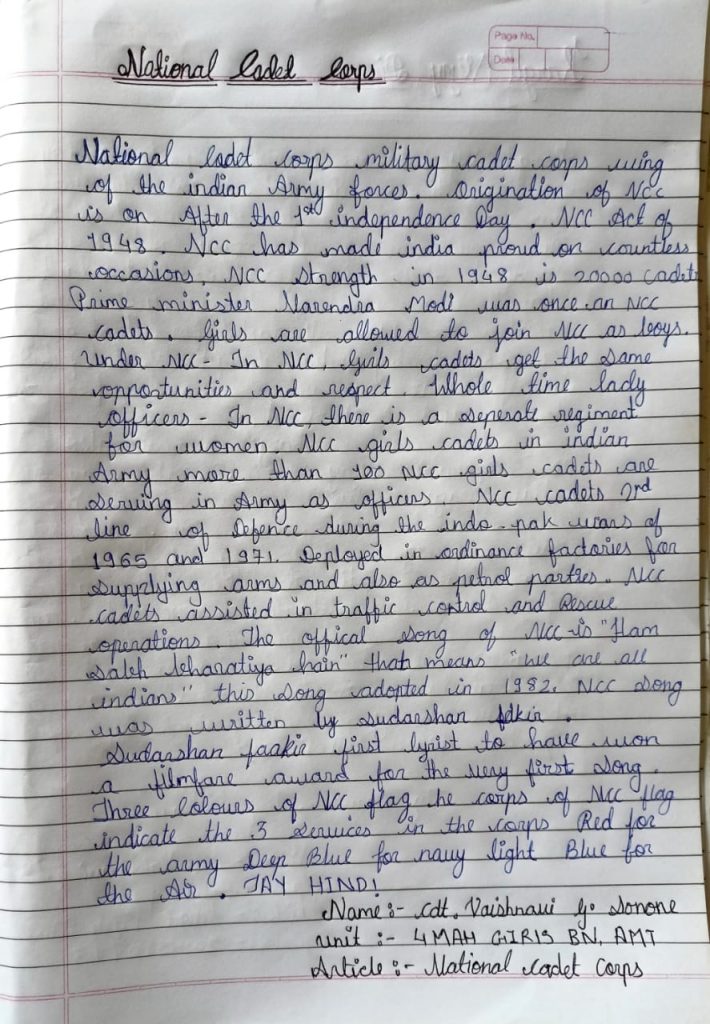 Page No.
Date
National Cadet Corps
National Cadet corps military cadet corps wing
of the indian Army forces. Origination of NCC
is on After the 1st independence Day. NCC Act of
1948. NCC has made india proud on countless
occasions. NCC Strength in 1948 is 20000 cadets
Prime minister Narendra Modi was once an NCC
cadets. Girls are allowed to join NCC as boys.
under NCC - In NCC, Girls cadets get the same
opportunities and respect. Whole time lady
officers - In NCC, there is a seperate regiment
for women. NCC girls cadets in indian
Army more than 100 NCC girls cadets are
serving in Army as officers. NCC cadets 2rd
line of Defence during the indo-pak wars of
1965 and 1971. Deployed in ordinance factories for
supplying arms and also as petrol parties. NCC
cadets assisted in traffic control and Rescue
operations. The offical song of NCC is "Ham
Sabh bharatiya hain" that means "we are all
indians" this song adopted in 1982. NCC song
was written by Sudarshan
Sudarshan faakir first lyrist to have won
a filmfare award for the very first song.
Three Colours of NCC flag he corps of NCC flag
indicate the 3 services in the corps Red for
the army Deep Blue for navy light Blue for
the Air. JAY HIND!
Name :- Cdt. Vaishnavi G. Sonone
unit :- 4 MAH GIRIS BN, AMT
Article :- National Cadet Corps